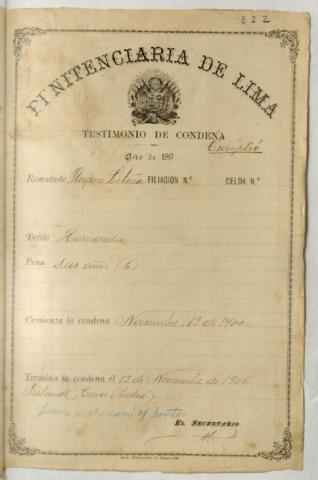 322
PENITENCIARIA DE LIMA
TESTIMONIO DE CONDENA
Cumplió
Año de 189
Rematado FILIACION N.º CELDA N.º
Delito Homicidio
Pena Seis años (6)
Comienza la condena Noviembre 12 de 1900
Termina la condena el 12 de Noviembre de 1906
Tribunal
EL SECRETARIO